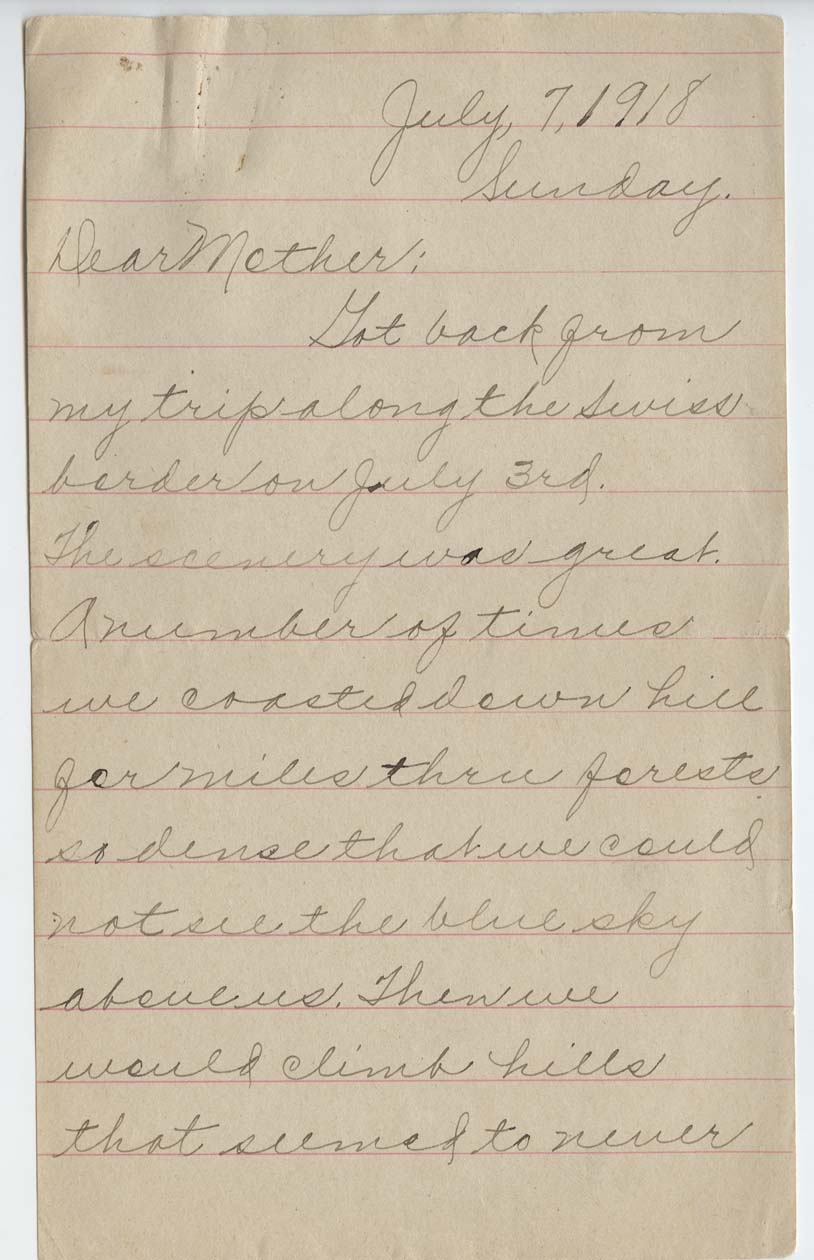 July, 7, 1918
Sunday.
Dear Mother;
Got back from
my trip along the Swiss
border on July 3rd.
The scenery was great.
A number of times
we coasted down hill
for miles thru forests
so dense that we could
not see the blue sky
above us. Then we
would climb hills
that seemed to never